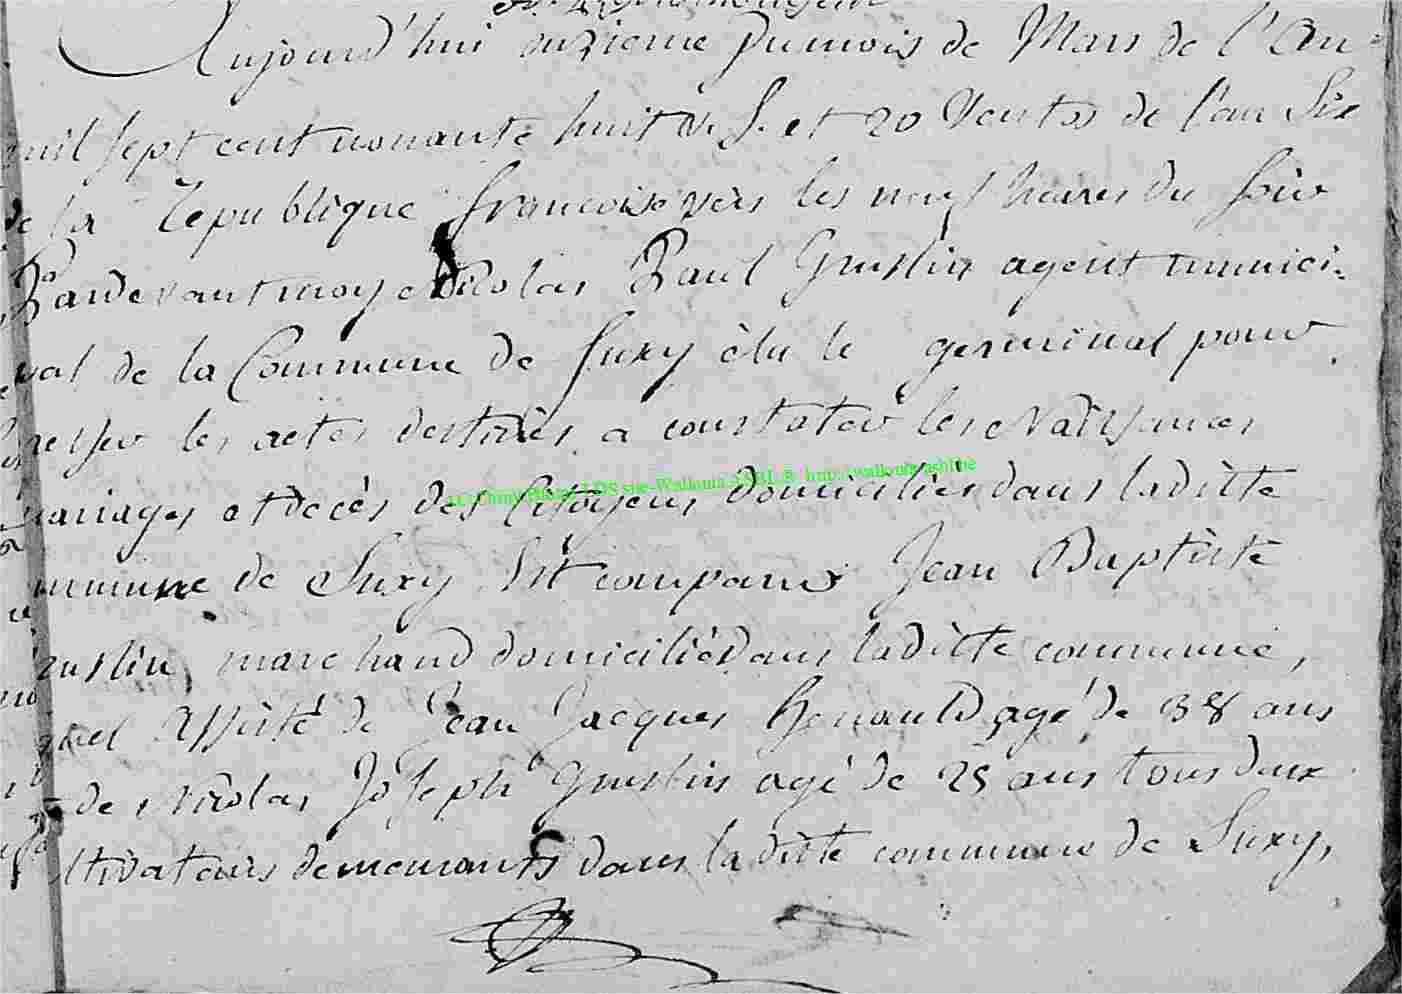 Aujourd'hui onzieme du mois de Mars de l'an
mil sept cent nonante huit v. S. et 20 Ventos de l'an Six
de la republique francoise vers les neuf heures du soir
Pardevant moy Nicolas Paul Gruslin agent munici-
pal de la Commune de Suxy élu le germinal pour
dresser les actes destinés a constater les Naissances
mariages et decès des Citoyens domiciliés dans laditte
(C) LDS via-Wallonia ASBL ® http://wallonia-asbl.be
commune de Suxy Est comparu Jean Baptiste
Gruslin marchand domicilié dans laditte commune,
lequel assisté de Jean Jacques Henauld agé de 38 ans
de Nicolas Joseph Gruslin agé de 25 ans tous deux
cultivateurs demeurants dans laditte commune de Suxy,